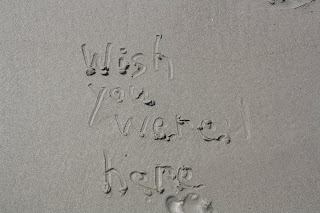 Wish
you
were
here